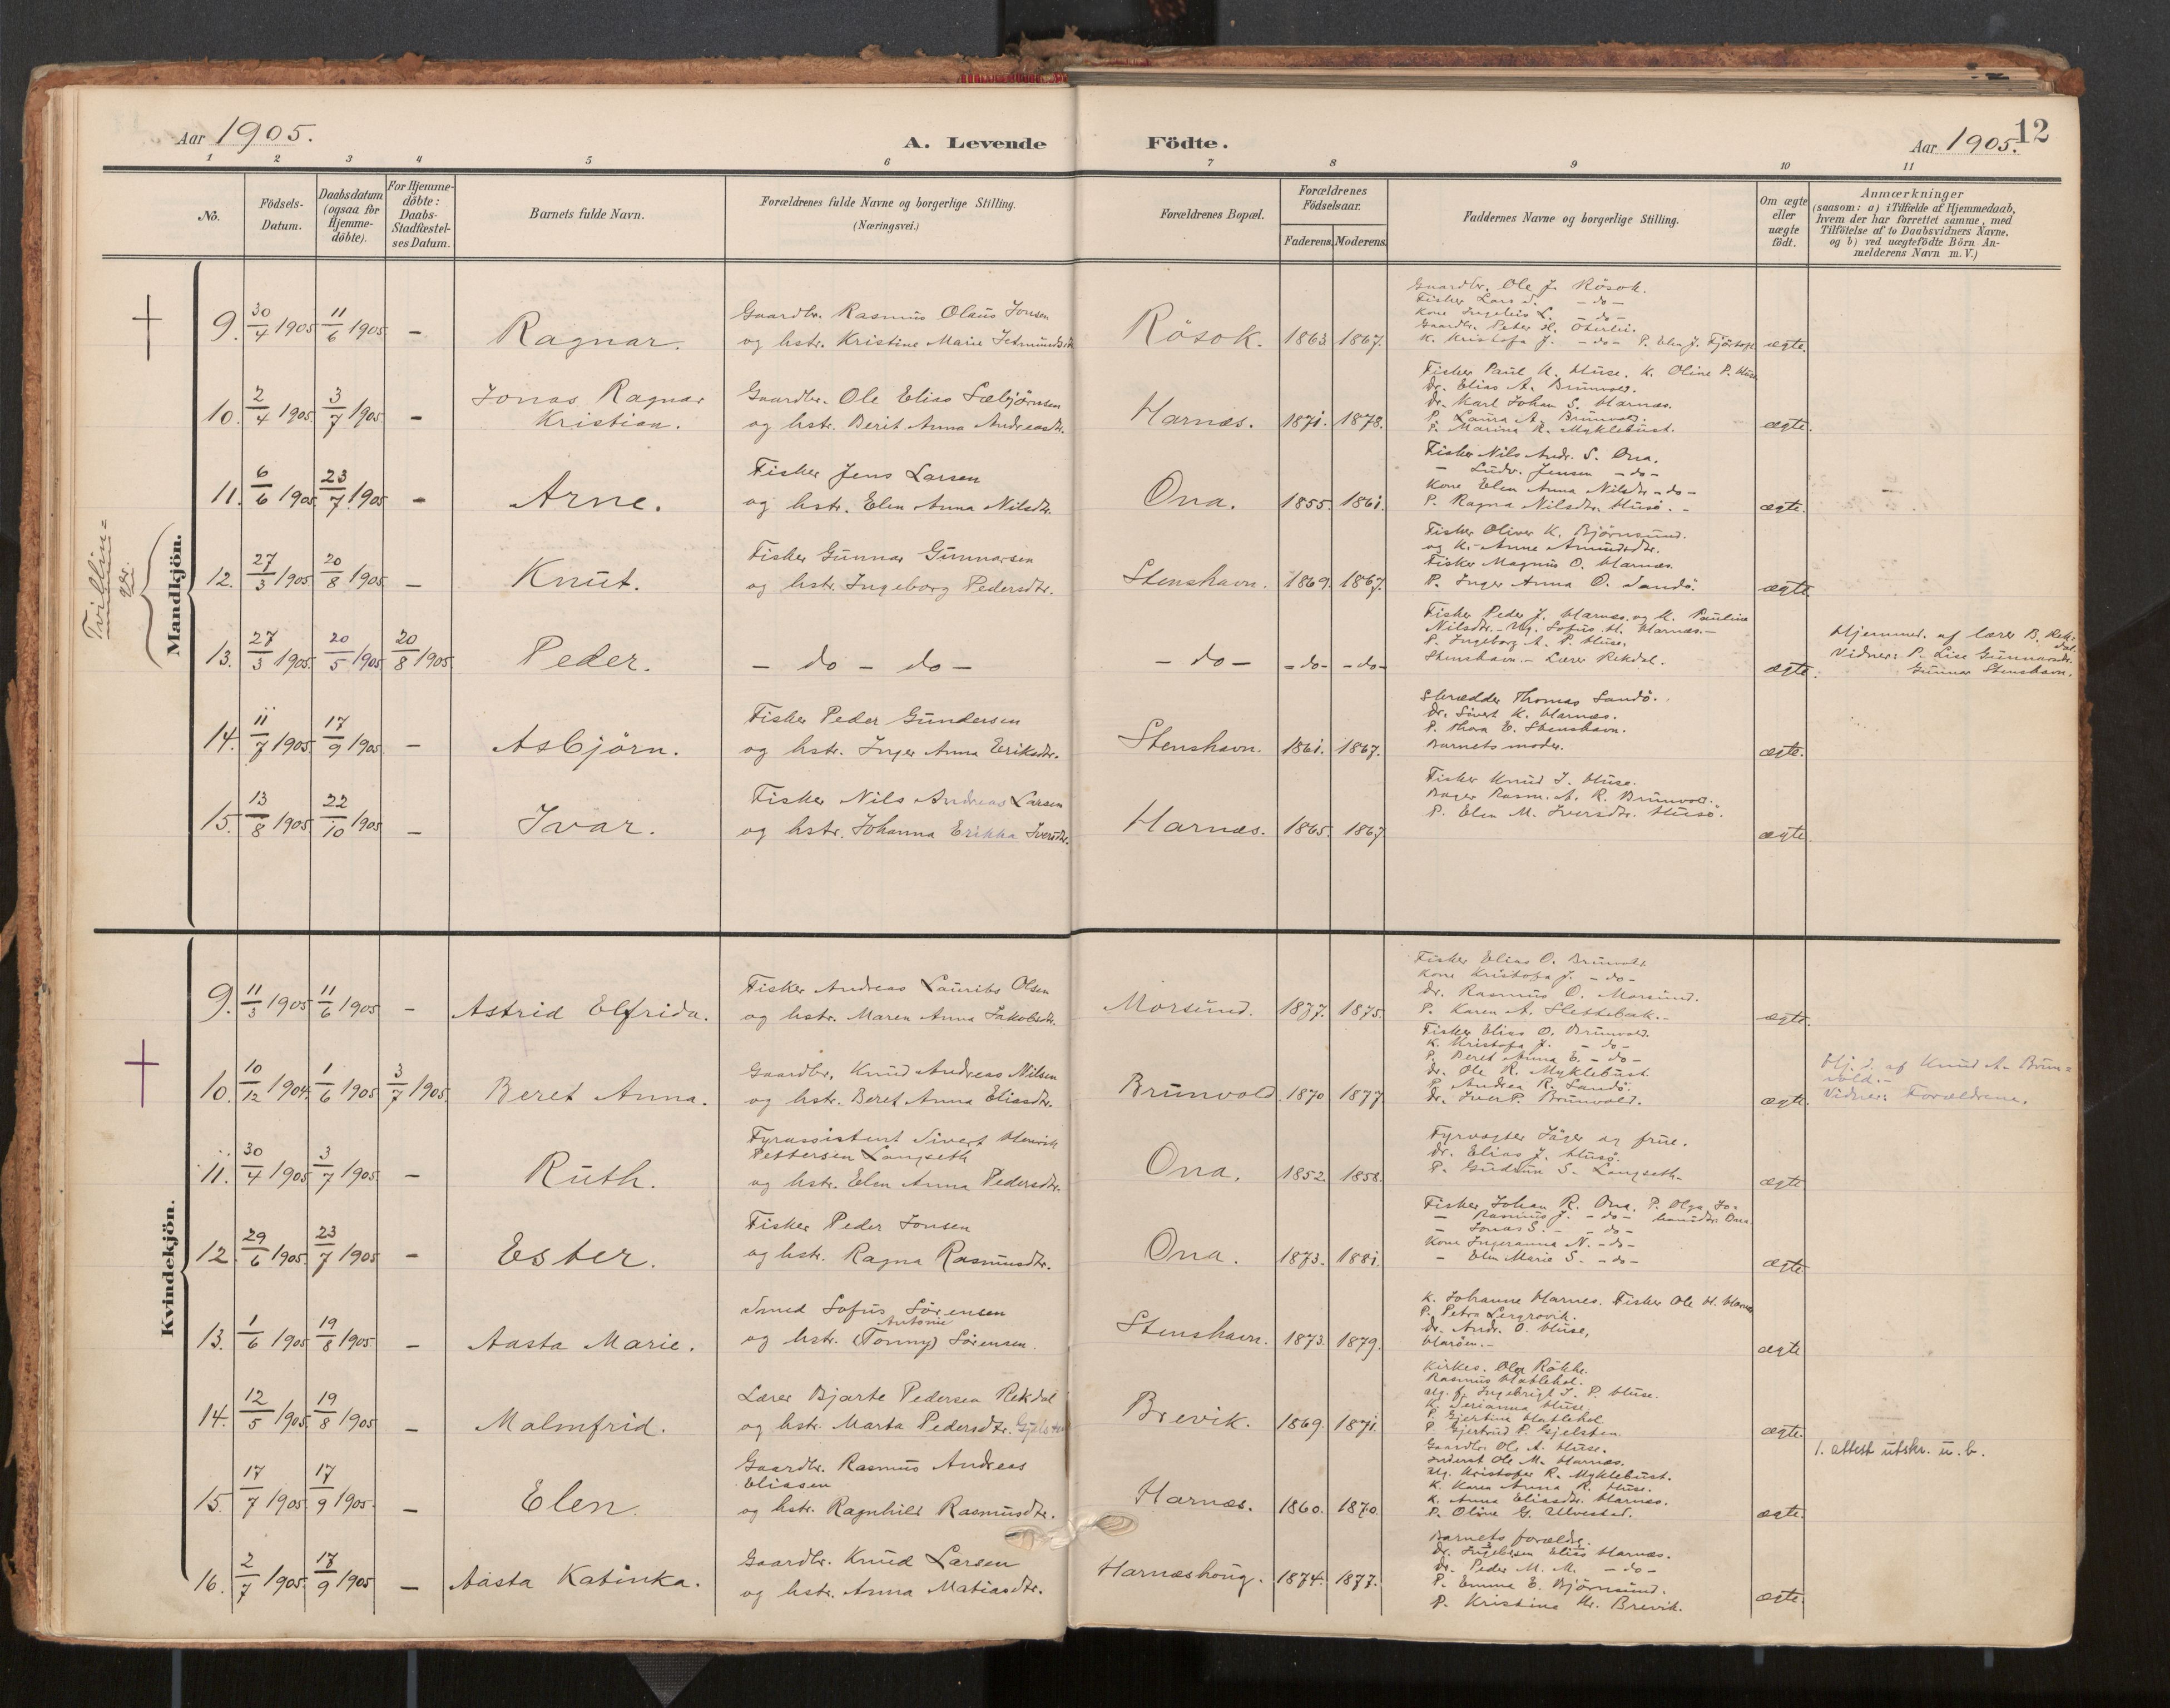 Aar 1905.
A. Levende Födte.
Aar 1905.
12
1 2 3 4 5 6 7 8 9 10 11
No.
Födsels-Datum.
Daabsdatum (ogsaa for Hjemme-döbte).
For Hjemme-döbte: Daabs-Stadfæstel-ses Datum.
Barnets fulde Navn.
Forældrenes fulde Navne og borgerlige Stilling.
(Næringsvei.)
Forældrenes Bopæl.
Forældrenes Födselsaar.
Faderens. Moderens.
Faddernes Navne og borgerlige Stilling.
Om ægte eller uægte födt.
Anmærkninger
(saasom: a) i Tilfælde af Hjemmedaab,
hvem der har forrettet samme, med
Tilföielse af to Daabsvidners Navne,
og b) ved uægtefödte Börn An-
melderens Navn m. V.)
Mandkjön.
Tvillin=
ger.
9. 30/4 1905 11/6 1905 - Ragnar.
Gaardbr. Rasmus Olaus Jonsen
og hstr. Kristine Marie
Rösok. 1863 1867.
Gaardbr. Ole J. Rösok.
Fisker Lars S. - do -
Kone L. - do -
Gaardbr. Peter H. Oterlei.
K. Kristofa J. - do - P. Elen J. Fjörtoft
ægte.
10. 2/4 1905 3/7 1905 - Jonas Ragnar
Kristian.
Gaardbr. Ole Elias Sæbjörnsen
og hstr. Berit Anna Andreasdtr.
Harnæs. 1871. 1878.
Fisker Paul K. Huse. K. Oline P. Huse
Dr. Elias A. Brunvold.
Dr. Karl Johan S. Harnæs.
P. Laura A. Brunvold.
P. Marina K. Myklebust.
ægte.
11. 6/6 1905 23/7 1905 - Arne.
Fisker Jens Larsen
og hstr. Elen Anna Nilsdtr.
Ona. 1855. 1861.
Fisker Nils Andr. S. Ona.
- Ludv. Jensen - do -
Kone Elen Anna Nilsdtr. - do -
P. Ragna Nilsdtr. Husö. -
ægte.
12. 27/3 1905 20/8 1905 - Knut.
Fisker Gunnar Gunnarsen
og hstr. Ingeborg Pedersdtr.
Stenshavn. 1869. 1867.
Fisker Oliver K. Björnsund.
og K. Anne Amundsdtr.
Fisker Magnus O. Harnæs.
P. Inger Anna O. Sandö.
ægte
13. 27/3 1905 20/5 1905 20/8 1905 Peder.
- do - do -
- do - - do - - do -
Fisker Peder J. Harnæs. og K. Pauline
Nilsdtr. - Ug. Sofus H. Harnæs. -
P. Ingeborg A. P. Huse.
Stenshavn. - Lærer Rekdal.
ægte.
Hjemmed. af lærer B. Rek-
dal.
Vidner: P. Lise Gunnarsdtr.
Gunnar Stenshavn.
14. 11/7 1905 17/9 1905 - Asbjörn.
Fisker Peder Gundersen
og hstr. Inger Anna Eriksdtr.
Stenshavn. 1861. 1867.
Skrædder Thomas Sandö.
Dr. Sivert K. Harnæs.
P. Thora E. Stenshavn.
Barnets moder.
ægte.
15. 13/8 1905 22/10 1905 - Ivar.
Fisker Nils Andreas Larsen
og hstr. Johanna Erikka Iversdtr.
Harnæs. 1865. 1867
Fisker Knud I. Huse.
Bager Rasm. A. R. Brunvold.
P. Elen M. Iversdtr. Husö.
ægte.
Kvindekjön.
9. 11/3 1905 11/6 1905 - Astrid Elfrida.
Fisker Andreas Laurits Olsen
og hstr. Maren Anna Jakobsdtr.
Morsund. 1877. 1875.
Fisker Elias O. Brunvold
Kone Kristofa J. - do -
Dr. Rasmus O. Morsund.
P. Karen A. Slettebak. -
ægte.
10. 10/12 1904. 1/6 1905 3/7 1905. Beret Anna.
Gaardbr. Knud Andreas Nilsen
og hstr. Beret Anna Eliasdtr.
Brunvold. 1870 1877
Fisker Elias O. Brunvold.
K. Kristofa J. - do -
P. Beret Anna E. - do -
Dr. Ole R. Myklebust
P. Andrea R. Sandö.
Dr. Iver P. Brunvold.
ægte.
Hj. d. af Knud A. Brun=
vold. -
Vidner: Forældrene.
11. 30/4 1905 3/7 1905 - Ruth.
Fyrassistent Sivert Henrik
Pettersen Langseth
og hstr. Elen Anna Pedersdtr.
Ona. 1852. 1858.
Fyrvogter Jäger og frue.
Dr. Elias J. Husö.
P. Gudrun S. Langseth.
ægte
12. 29/6 1905. 23/7 1905 - Ester.
Fisker Peder Jonsen
og hstr. Ragna Rasmusdtr.
Ona. 1873. 1881.
Fisker Johan R. Ona. P. Olga Jo-
- Rasmus J. - do - Ona
- Jonas S. - - do -
Kone Ingeranna N. - do -
- Elen Marie S. - do -
ægte
13. 1/6 1905 19/8 1905. - Aasta Marie.
Smed Sofus Sörensen
Antonie
og hstr. (Tonny) Sörensen.
Stenshavn. 1873. 1879.
K. Johanne Harnes. Fisker Ole H. Harnæs
P. Petra Lergrovik.
Dr. Andr. O. Huse,
Haröen. -
ægte
14. 12/5 1905 19/8 1905. - Malmfrid.
Lærer Bjarte Pedersen Rekdal
og hstr. Marta Pedersdtr. Gjelsten
Brevik. 1869. 1871.
Kirkes. Ola Rökke.
Rasmus Hatlehol.
Ug. f. Ingebrigt I. P. Huse.
K. Serianna Huse.
P. Gjertine Hatlehol
P. Gjertrud P. Gjelsten.
ægte.
1. attest utskr. u. b.
15. 17/7 1905 17/9 1905. - Elen.
Gaardbr. Rasmus Andreas
Eliassen
og hstr. Ragnhild Rasmusdtr.
Harnæs. 1860. 1870.
Gaardbr. Ole A. Huse.
Inderst Ole M. Harnæs.
Ug. Kristofer R. Myklebust.
K. Karen Anna R. Huse.
K. Anna Eliasdtr. Harnæs.
P. Oline G. Ulvestad.
ægte.
16. 2/7 1905. 17/9 1905 - Aasta Katinka.
Gaardbr. Knud Larsen
og hstr. Anna Matiasdtr.
Harnæshoug. 1874. 1877.
Barnets forældre.
Dr. Elias Harnæs.
Dr. Peder M. M. - do -
P. Emma E. Björnsund.
P. Kristine Kr. Brevik.
ægte.